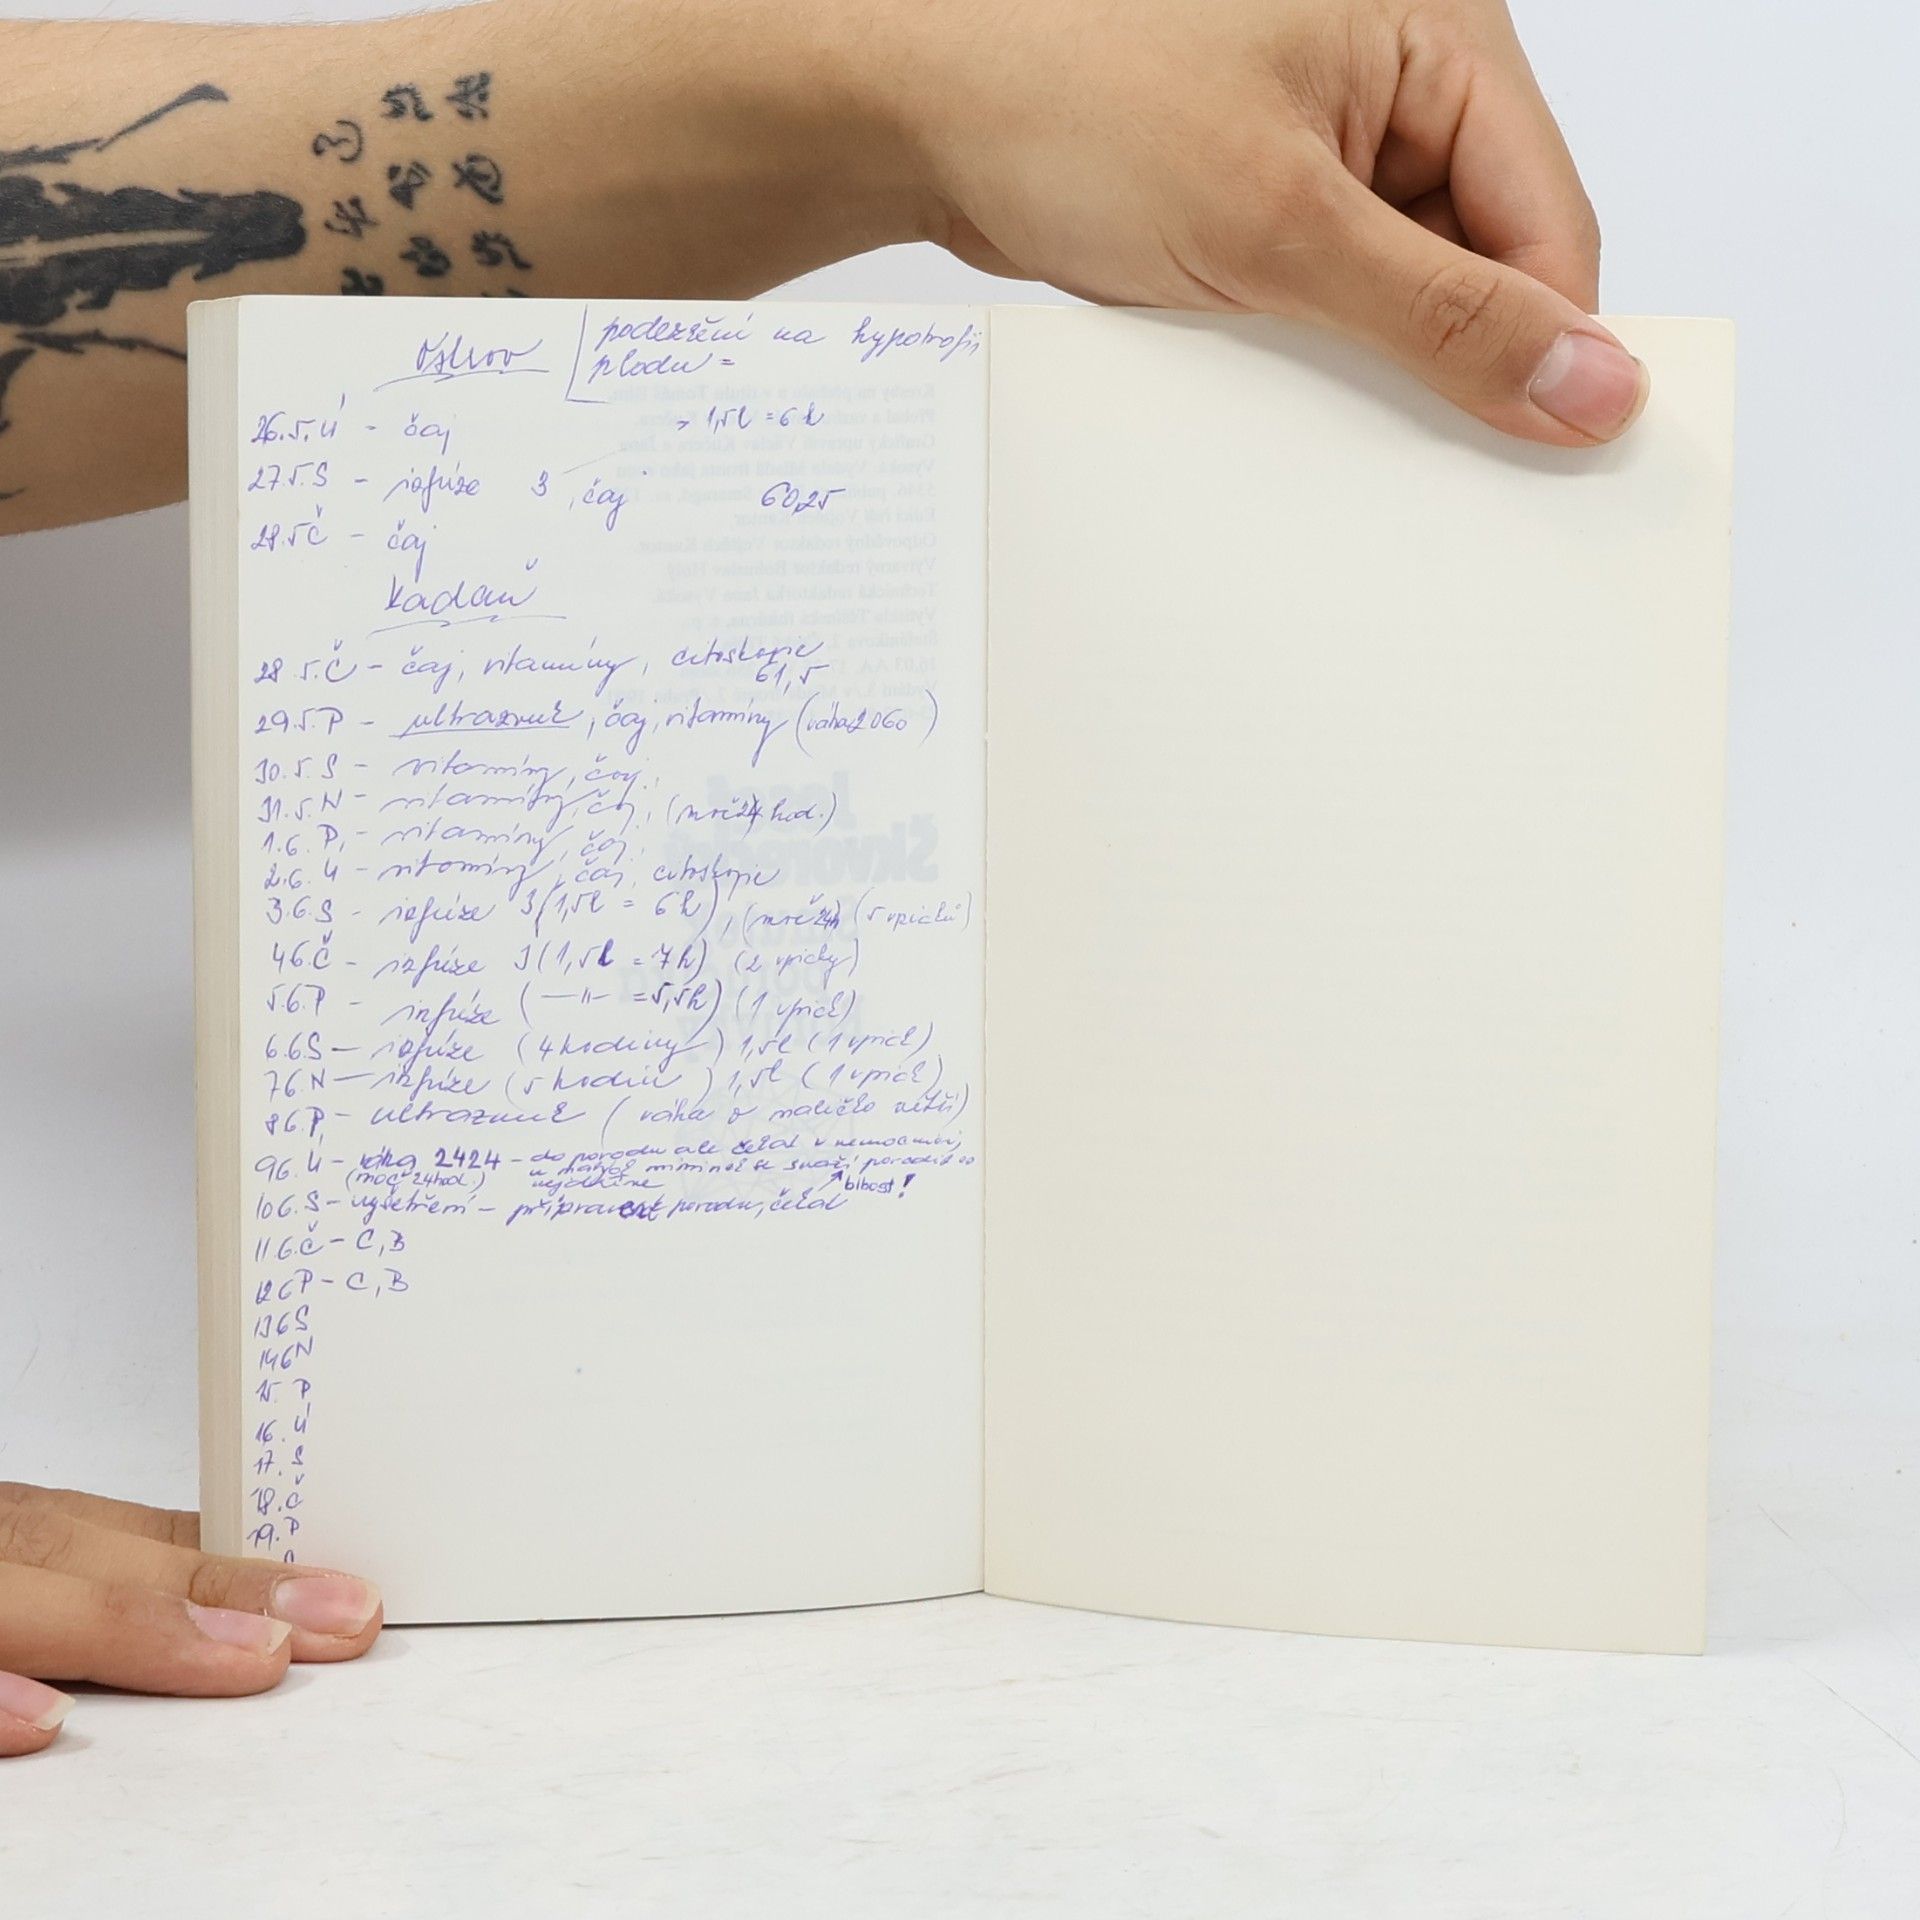 Ostrov
podezření na hypotrofii
plodu =
26.5. Ú - čaj → 1,5l = 6h
27.5. S - infúze 3, čaj 60,25
28.5 Č - čaj
Kadaň
28.5. Č - čaj, vitamíny, citoskopie
61,5
29.5. P - ultrazvuk, čaj, vitamíny (váha 2060)
30.5. S - vitamíny, čaj,
31.5. N - vitamíny, čaj, (moč 24 hod.)
1.6. P, - vitamíny, čaj,
2.6. Ú - vitamíny, čaj, citoskopie
3.6. S - infúze 3 (1,5l = 6h), (moč 24h) (5 vpichů)
4 6. Č - infúze 3 (1,5l = 7h) (2 vpichy)
5.6. P - infúze ( —"— = 5,5h) (1 vpich)
6.6 S — infúze (4 hodiny) 1,5l (1 vpich)
7 6. N — infúze (5 hodin) 1,5l (1 vpich)
8 6. P, - ultrazvuk (váha o maličko větší)
9 6. Ú - váha 2424 - do porodu ale čekat v nemocnici,
(moč 24 hod.) u matek miminek se snaží porodit co
nejdříve blbost!
10 6. S - vyšetření - připravenost porodu, čekat
11 6. Č - C, B
12 6 P - C, B
13 6 S
14 6 N
15. P
16. Ú
17. S
18. Č
19. P